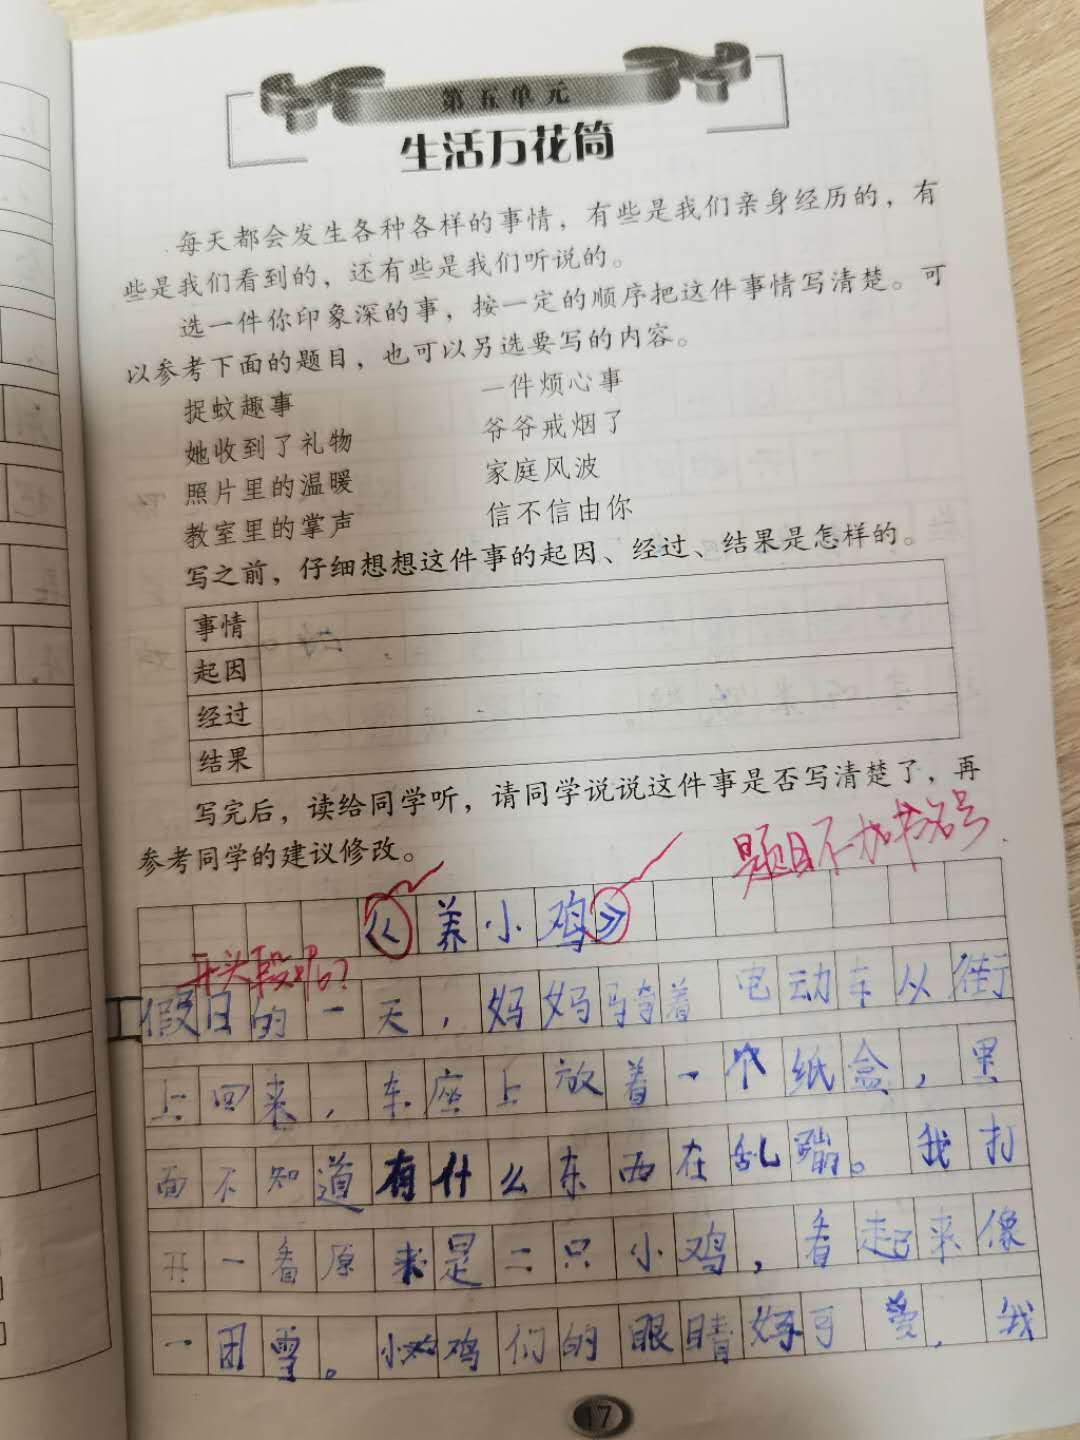 第五单元
生活万花筒
每天都会发生各种各样的事情，有些是我们亲身经历的，有
些是我们看到的，还有些是我们听说的。
选一件你印象深的事，按一定的顺序把这件事情写清楚。可
以参考下面的题目，也可以另选要写的内容。
捉蚊趣事 一件烦心事
她收到了礼物 爷爷戒烟了
照片里的温暖 家庭风波
教室里的掌声 信不信由你
写之前，仔细想想这件事的起因、经过、结果是怎样的。
事情
起因
经过
结果
写完后，读给同学听，请同学说说这件事是否写清楚了，再
参考同学的建议修改。
题目不加书名号
《养小鸡》
开头段呢？
假日的一天，妈妈骑着电动车从街
上回来，车座上放着一个纸盒，里
面不知道有什么东西在乱蹦。我打
开一看原来是二只小鸡，看起来像
一团雪。小鸡们的眼睛好可爱，我
17